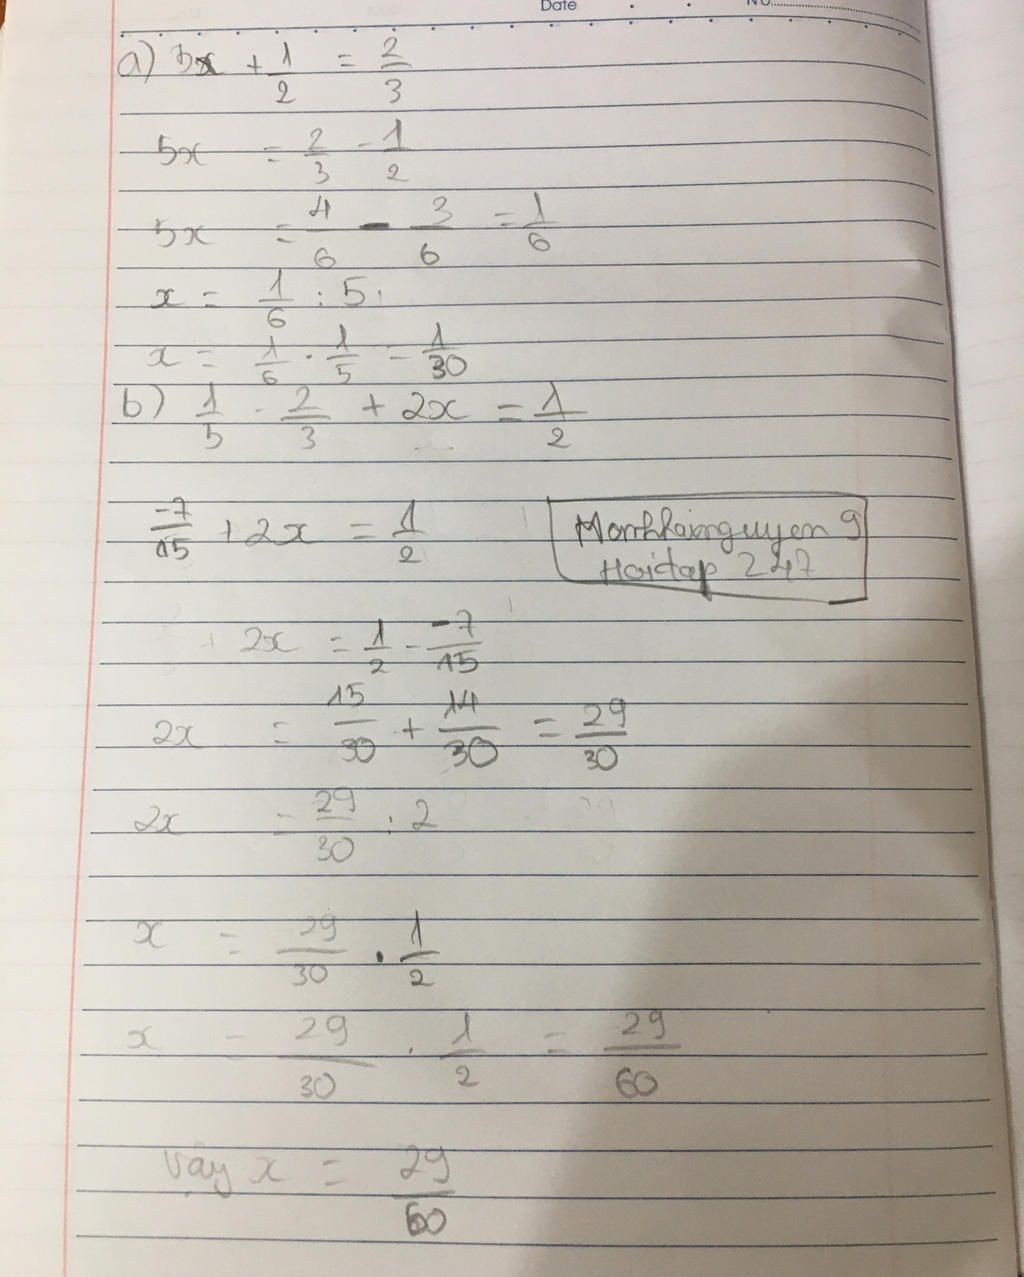 Date No
a) 5x + 1/2 = 2/3
5x = 2/3 - 1/2
5x = 4/6 - 3/6 = 1/6
x = 1/6 : 5
x = 1/6 . 1/5 = 1/30
b) 1/5 - 2/3 + 2x = 1/2
-7/15 + 2x = 1/2
Manhhainguyen 9
Hoidap 247
2x = 1/2 - -7/15
2x = 15/30 + 14/30 = 29/30
2x = 29/30 : 2
x = 29/30 . 1/2
x = 29/30 . 1/2 = 29/60
vậy x = 29/60